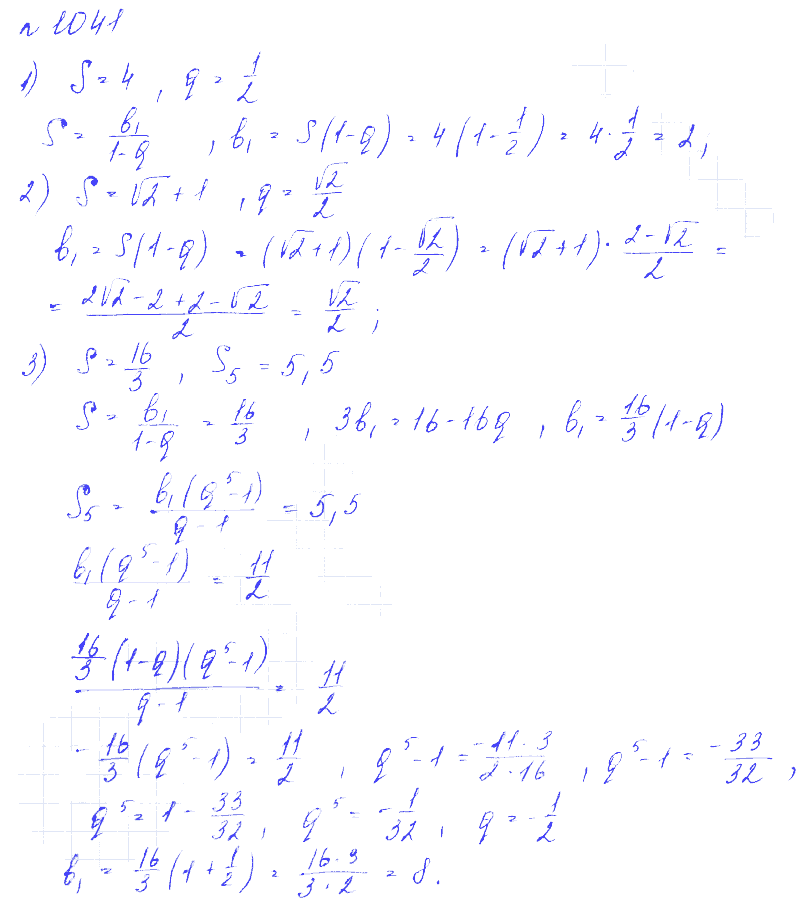 № 1041
1) S = 4, q = 1/2
S = b₁/(1-q), b₁ = S(1-q) = 4(1 - 1/2) = 4 · 1/2 = 2;
2) S = √2 + 1, q = √2/2
b₁ = S(1-q) = (√2+1)(1 - √2/2) = (√2+1) · (2-√2)/2 =
= (2√2 - 2 + 2 - √2)/2 = √2/2;
3) S = 16/3, S₅ = 5,5
S = b₁/(1-q) = 16/3, 3b₁ = 16 - 16q, b₁ = 16/3 (1-q)
S₅ = b₁(q⁵-1)/(q-1) = 5,5
b₁(q⁵-1)/(q-1) = 11/2
16/3 (1-q)(q⁵-1)/(q-1) = 11/2
-16/3 (q⁵-1) = 11/2, q⁵-1 = (-11·3)/(2·16), q⁵-1 = -33/32,
q⁵ = 1 - 33/32, q⁵ = -1/32, q = -1/2
b₁ = 16/3 (1 + 1/2) = (16·3)/(3·2) = 8.